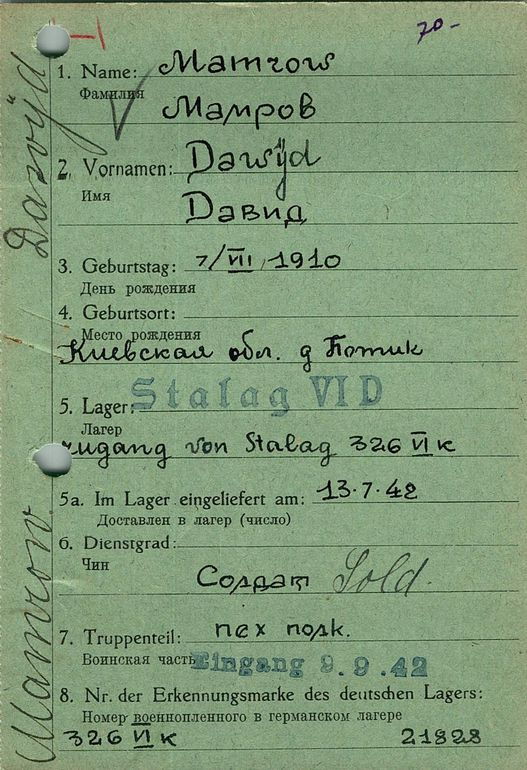 70-
1. Name: Mamrow
Фамилия
Мамров
2. Vornamen: Dawÿd
Имя
Давид
3. Geburtstag: 7/VII 1910
День рождения
4. Geburtsort:
Место рождения
Киевская обл. д Потик
Stalag VI D
5. Lager:
Лагер
zugang von Stalag 326 VI K
5a. Im Lager eingeliefert am: 13.7.42
Доставлен в лагер (число)
6. Dienstgrad:
Чин
Солдат Sold.
7. Truppenteil: пех полк.
Воинская часть Eingang 9.9.42
8. Nr. der Erkennungsmarke des deutschen Lagers:
Номер военнопленного в германском лагере
326 VI K 21828
Mamrow Dawÿd